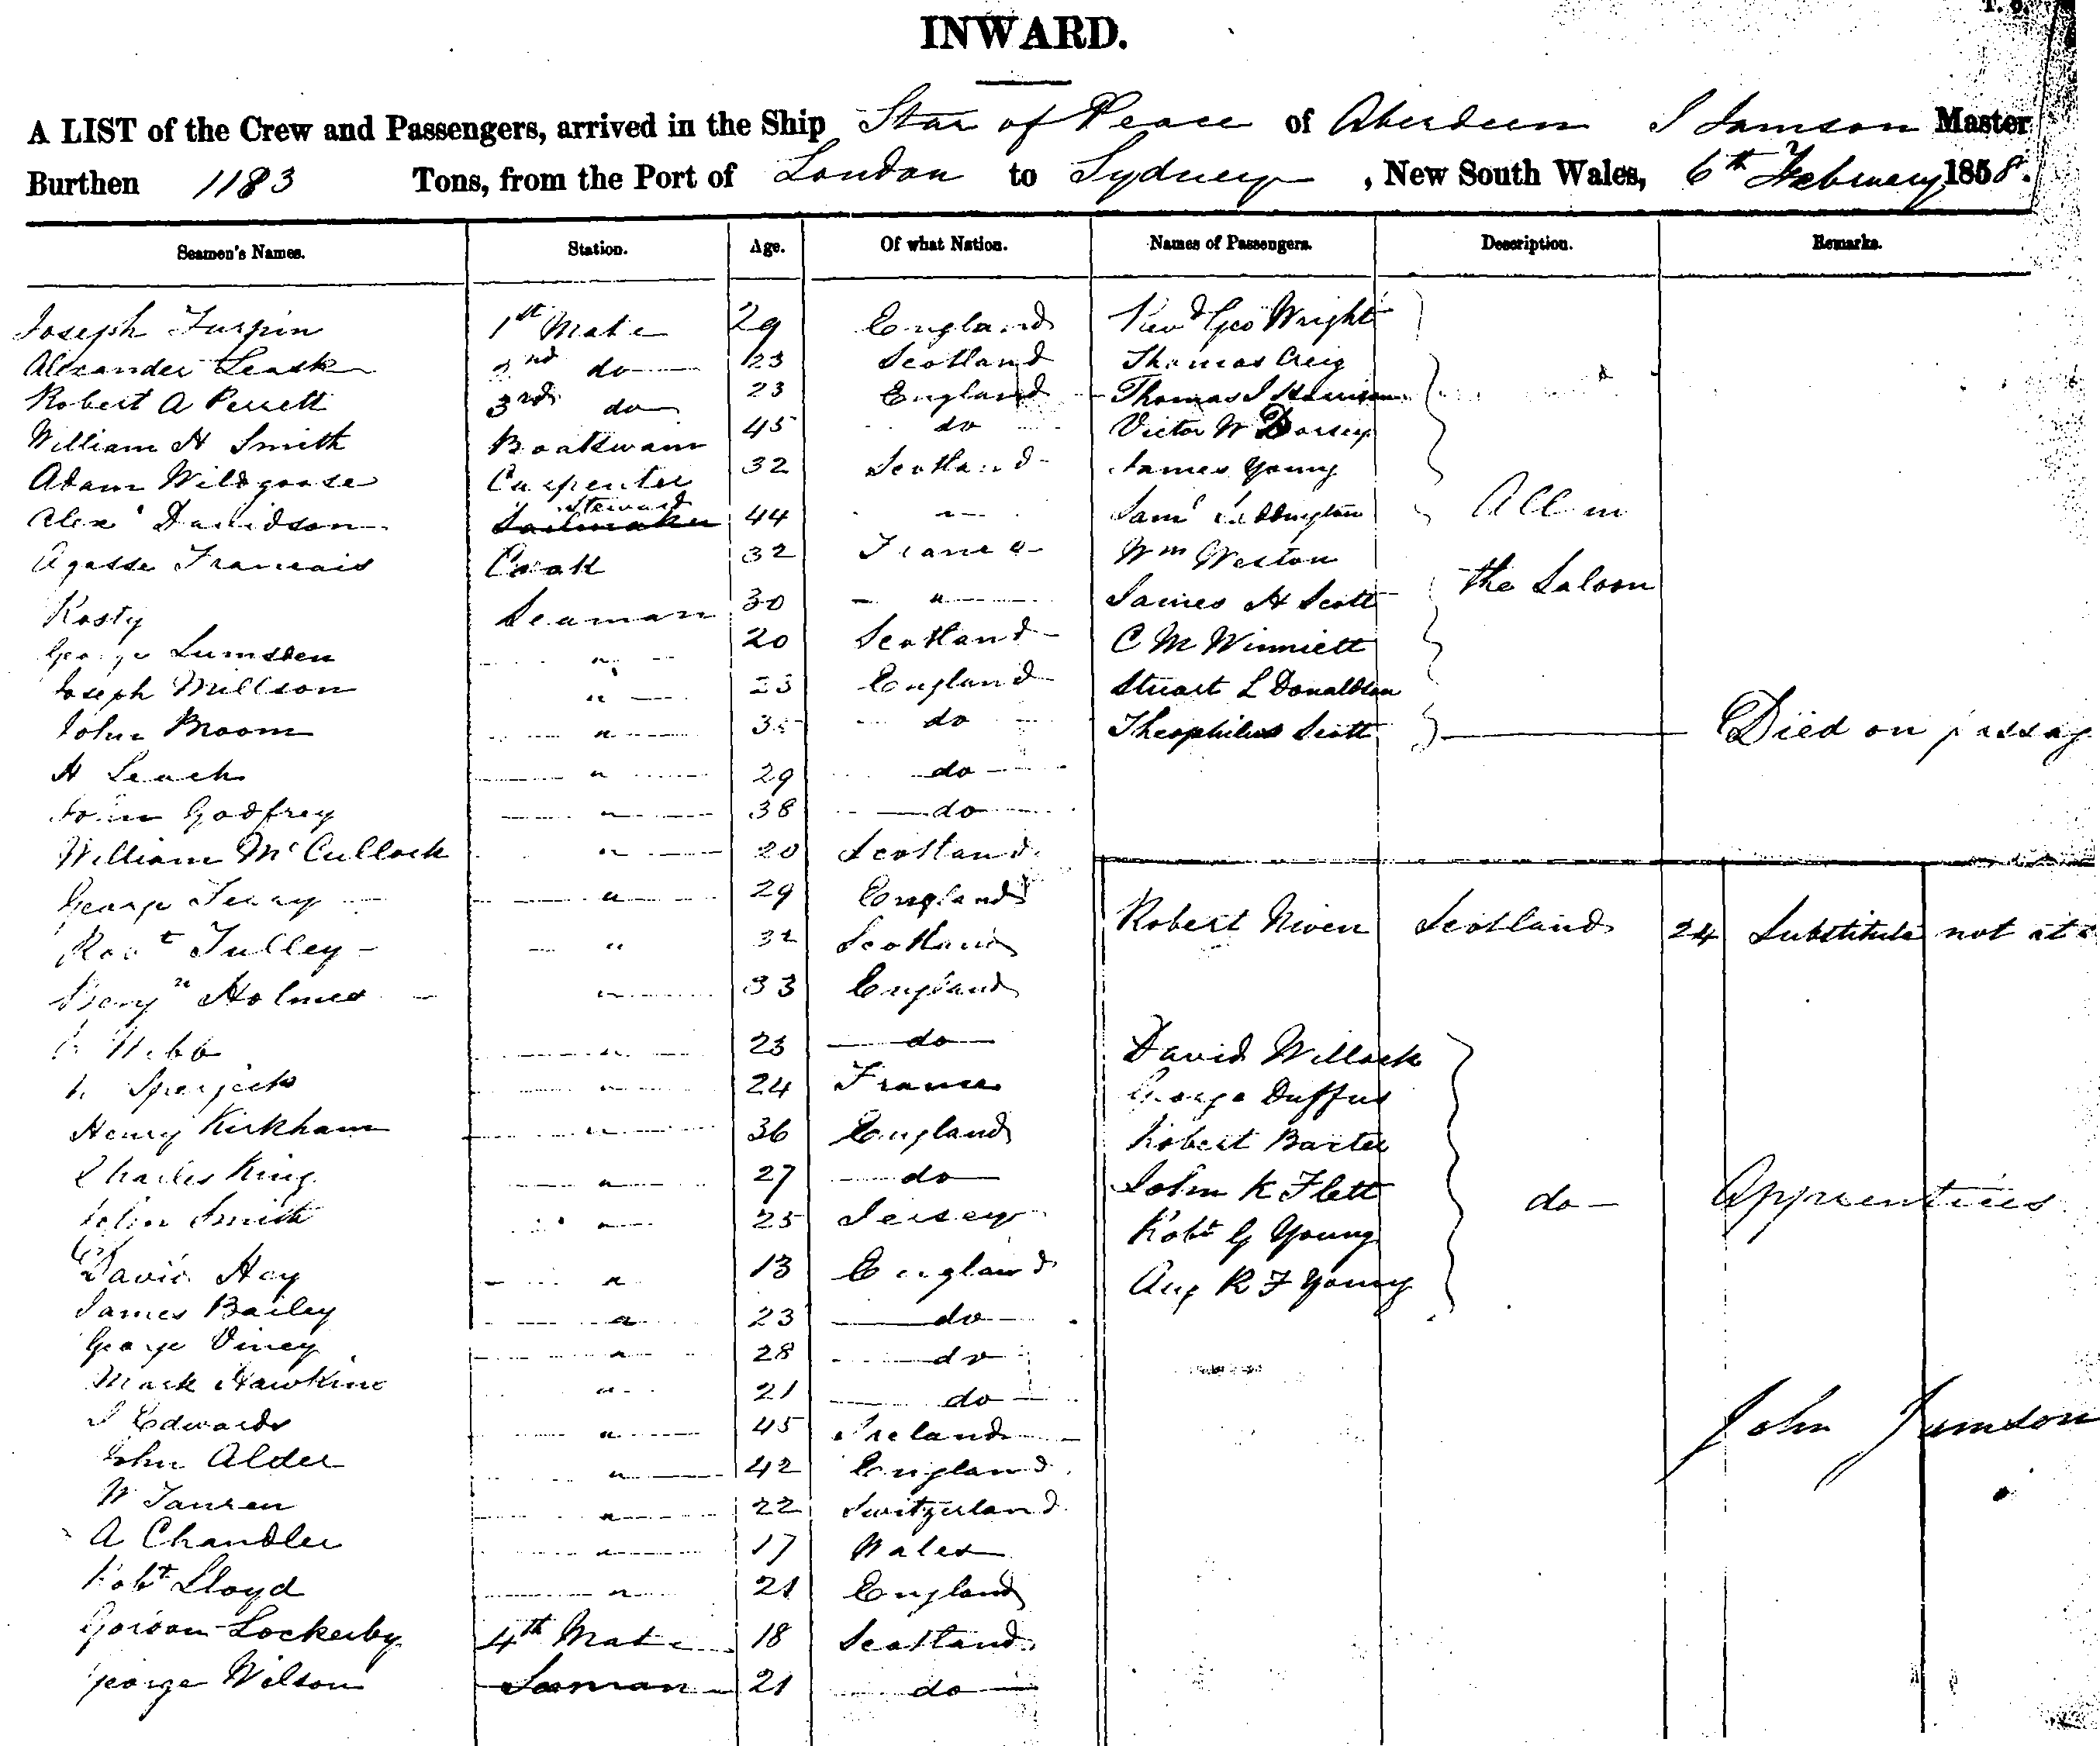 INWARD.
A LIST of the Crew and Passengers, arrived in the Ship Star of Peace of Aberdeen J Jamson Master
Burthen 1183 Tons, from the Port of London to Sydney, New South Wales, 6th February 1858.
Seamen's Names. Station. Age. Of what Nation. Names of Passengers. Description. Remarks.
Joseph Turpin 1st Mate 29 England Revd Geo Wright
Alexander Leask 2nd do 23 Scotland Thomas Creig
Robert A Perrett 3rd do 23 England Thomas J
William H Smith Boatswain 45 do Victor W Dorsey
Adam Wildgoose Carpenter 32 Scotland James Young
Alexr Davidson Steward 44 " Saml
All in
Agasse Francais Cook 32 France Wm Weston
the Saloon
Rosty Seaman 30 " James H Scott
George Lumsden " 20 Scotland C M Winniett
Joseph Millson " 23 England Stuart L Donaldson
John Broom " 35 do Theophilus Scott Died on passag
H Leach " 29 do
John Godfrey " 38 do
William McCullock " 20 Scotland
George " 29 England
Robt Tulley " 32 Scotland
Robert Niven Scotland 24 Substitute not at
Benjn Holmes " 33 England
Webb " 23 do
" 24 France
David Willock
George Duffus
Henry Kirkham " 36 England Robert Baxter
Charles King " 27 do John K Flett
do Apprentices
John Smith " 25 Jersey Robt G Young
David Hay " 13 England Aug R F Young
James Bailey " 23 do
George Viney " 28 do
Mark Hawkins " 21 do
J Edwards " 45 Ireland
John Jamson
John Alder " 42 England
W Jansen " 22 Switzerland
A Chandler " 17 Wales
Robt Lloyd " 21 England
Gordon Lockerby 4th Mate 18 Scotland
George Wilson Seaman 21 do